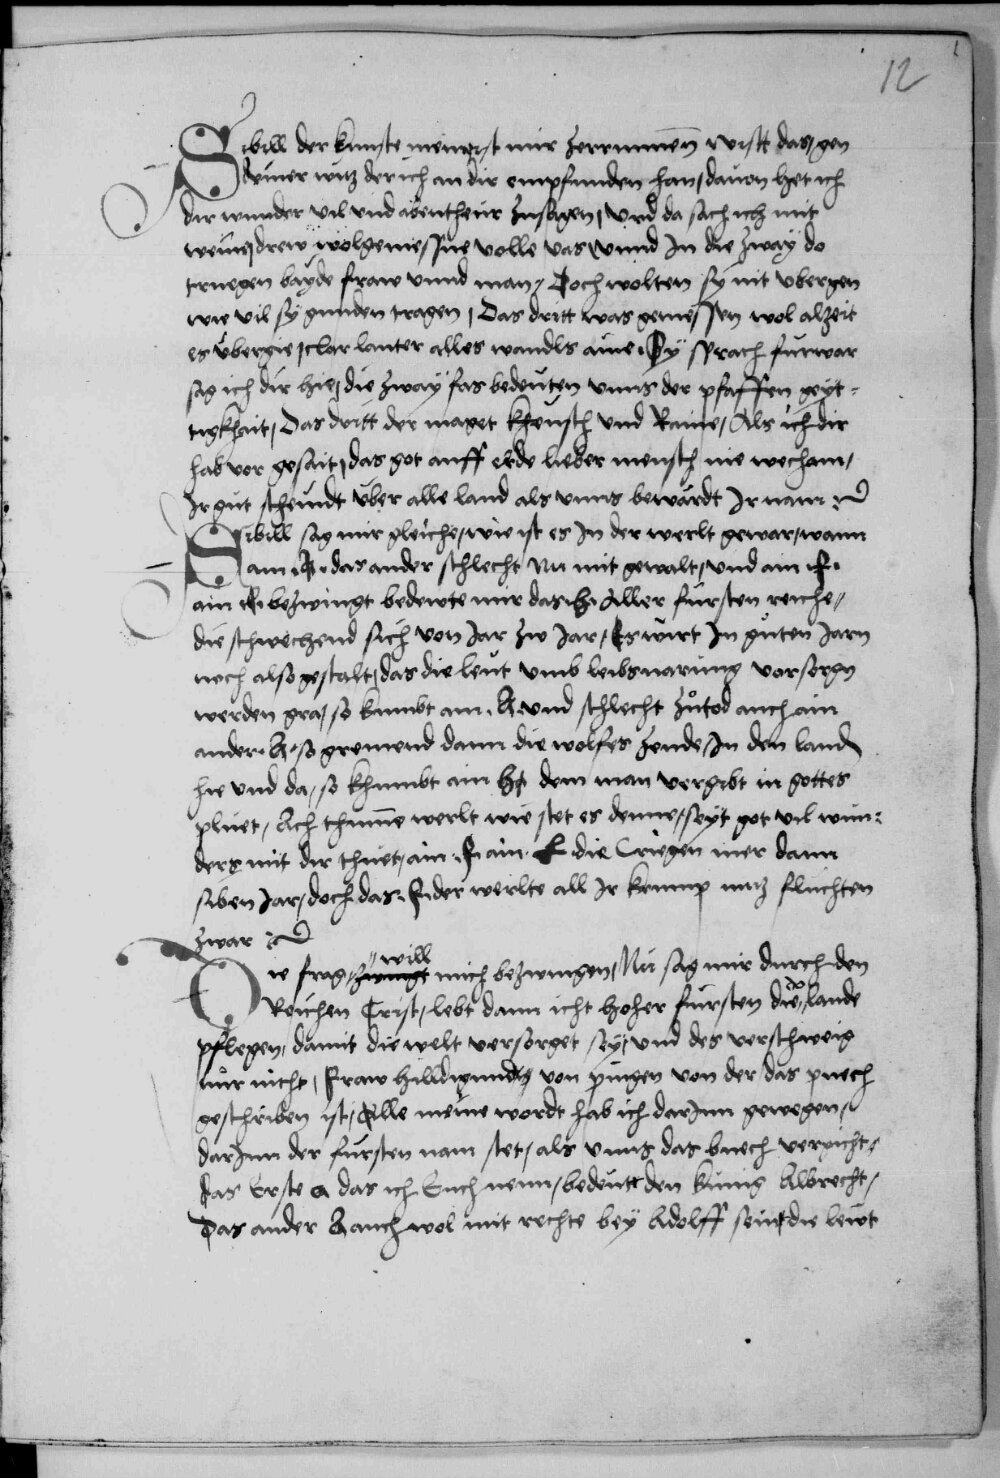 12
Sibill der kunste mein ist mir zerrunnen wistt das, gen
deiner witz der ich an dir empfunden han, dauon het ich
dir wunder vil vnd abentheur zusagen, vnd da sach ich mit
weine, drew wolgemessne volle vas vnnd In die zway do
truegen bayde fraw vnnd man, Doch wolten sy nit vbergen
wie vil sy gunden tragen, Das dritt was gemessen wol alzeit
es vbergie, clar lauter alles wandls aine. Sy sprach furwar
sag ich dir hie, die zway fas bedeuten vnns der pfaffen geyt-
tigkhait, Das dritt der maget kheusch vnd Raine, Als ich dir
hab vor gesait, das got auff erde lieber mensch nie wecham,
Ir gut scheindt vber alle land als vnns bewardt Ir nam
Sibill sag mir gleiche, wie ist es In der werlt gewar, wann
ain .A. das ander schlecht Nu mit gewalt, vnd ain .F.
ain .F. bezwingt bedewte mir das .h. Aller fursten reiche,
die schwechend sich von Jar zw Jar, Es wirt In guten Jarn
noch also gestalt, das die leut vmb leibsnarung vorsorgn
werden gra, so kumbt ain .A. vnd schlecht zutod auch ain
ander .A. so gremend dann die wolfes zende, In den land
hie vnd da, so khumbt ain h dem man vergibt in gottes
pluet, Ach thumme werlt wie stet es denne, seyt got vil wun-
ders mit dir thuet, ain .F. ain .L. die Criegen mer dann
siben Jar, doch das .F. der werlte all Ir krump muz fluchten
zwar
Die frag, zwingt will mich bezwingen, Nu sag mir durch den
Reichen Crist, lebt dann icht hoher fursten die do lande
pflegen, damit die welt versorget sey, vnd des verschweig
mir nicht, Fraw hilldigundt von pingen von der das puech
geschriben ist, Alle meine wordt hab ich darInn gewegen,
darInn der fursten nam stet, als vnns das buech vergicht,
Das Erste a das ich Euch nenn, bedeutt den kunig Albrecht,
Das ander A auch wol mit rechte bey Adolff seint die lewt